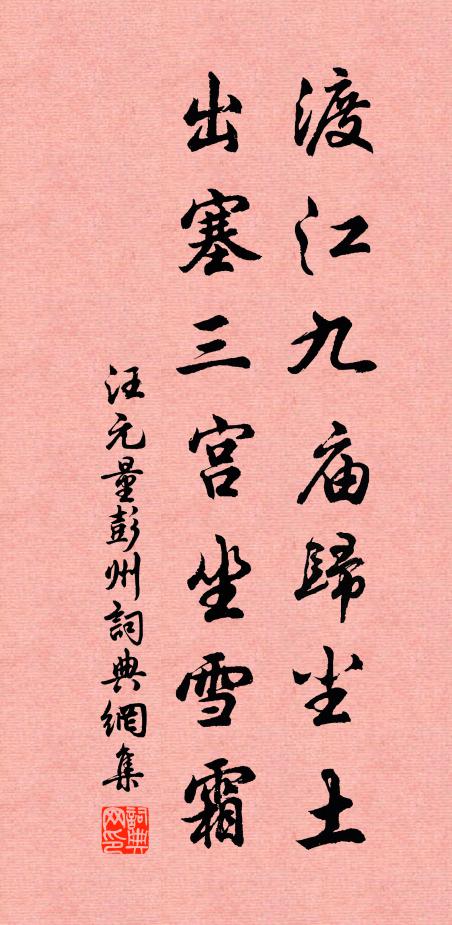 渡江九庙歸尘土
出塞三宫坐雪霜
汪元量彭州詞典網集
詞典网印